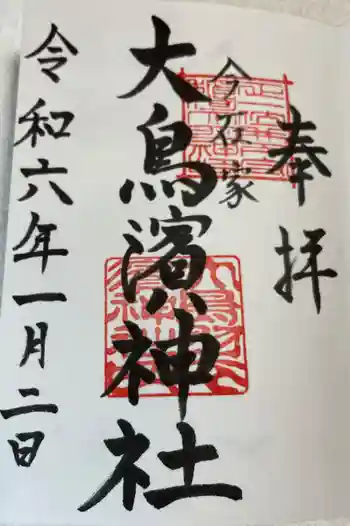 奉拝
今在家
大鳥濱神社
令和六年一月二日